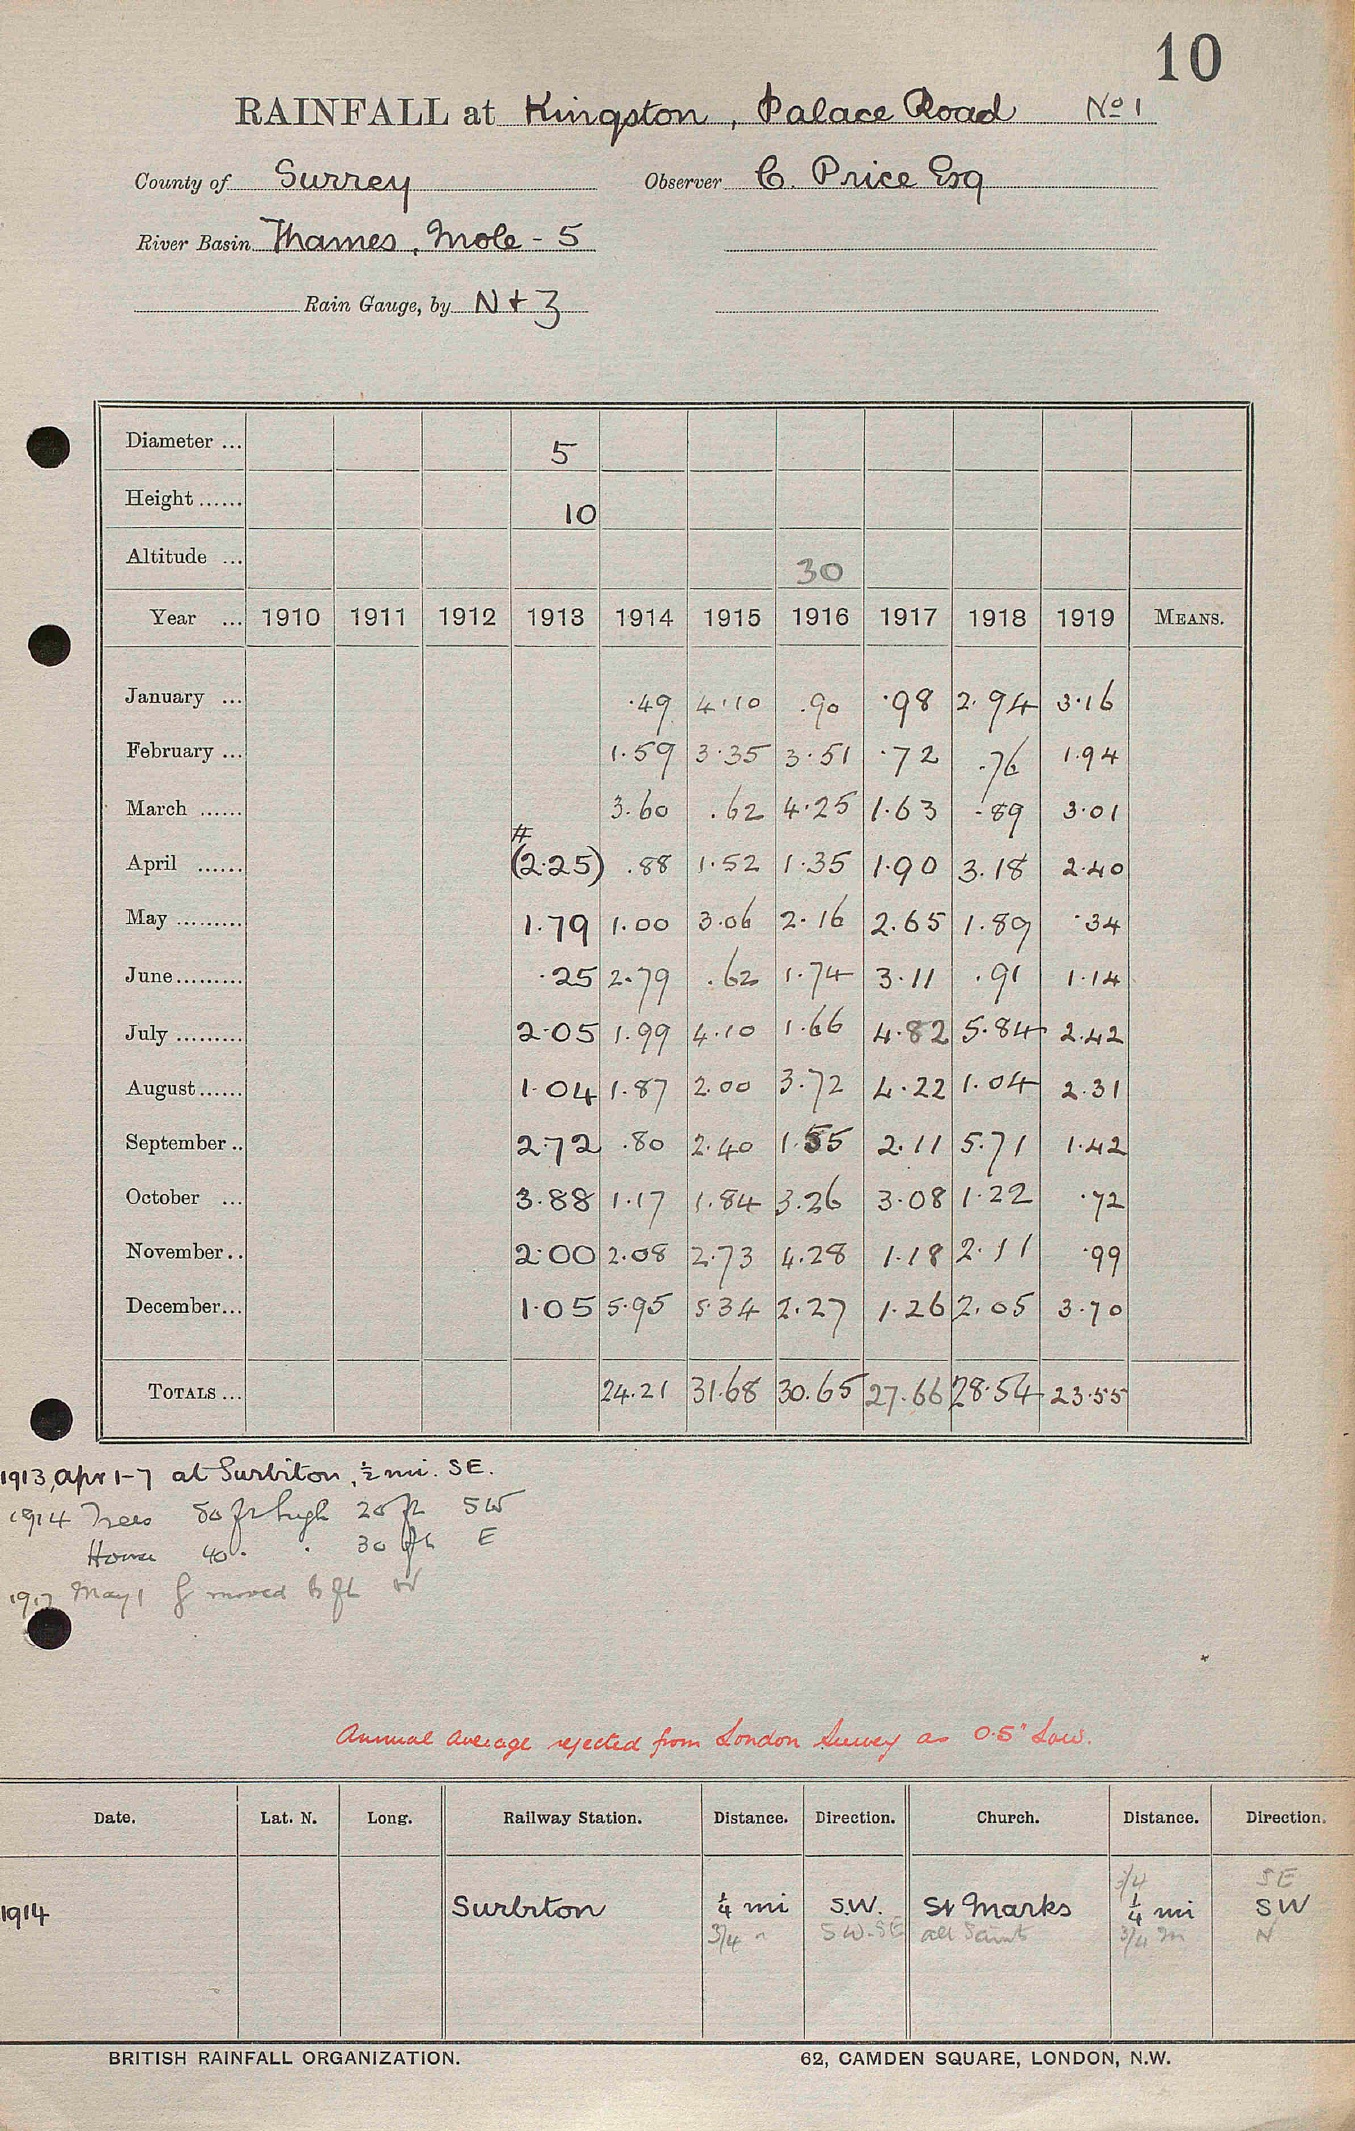 10
RAINFALL at Kingston, Palace Road No 1
County of Surrey Observer C. Price Esq
River Basin Thames, Mole - 5
Rain Gauge, by N + Z
Diameter ... 5
Height ...... 10
Altitude ... 30
Year ... 1910 1911 1912 1913 1914 1915 1916 1917 1918 1919 MEANS.
January ... .49 4.10 .90 .98 2.94 3.16
February ... 1.59 3.35 3.51 .72 .76 1.94
March ...... 3.60 .62 4.25 1.63 .89 3.01
#
April ...... (2.25) .88 1.52 1.35 1.90 3.18 2.40
May ......... 1.79 1.00 3.06 2.16 2.65 1.89 .34
June ......... .25 2.79 .62 1.74 3.11 .91 1.14
July ......... 2.05 1.99 4.10 1.66 4.82 5.84 2.42
August ...... 1.04 1.87 2.00 3.72 4.22 1.04 2.31
September .. 2.72 .80 2.40 1.55 2.11 5.71 1.42
October ... 3.88 1.17 1.84 3.26 3.08 1.22 .72
November .. 2.00 2.08 2.73 4.28 1.18 2.11 .99
December ... 1.05 5.95 5.34 2.27 1.26 2.05 3.70
TOTALS ... 24.21 31.68 30.65 27.66 28.54 23.55
1913, Apr 1-7 at Surbiton, ½ mi. SE.
1914 Trees 50 ft high 20 ft SW
House 40 " " 30 ft E
1917 May 1 g moved 6 ft W
Annual Average rejected from London Survey as 0.5" Low.
Date. Lat. N. Long. Railway Station. Distance. Direction. Church. Distance. Direction.
3/4 SE
1914 Surbiton ¼ mi S.W. St Marks ¼ mi SW
3/4 " SW-SE all Saints 3/4 m N
BRITISH RAINFALL ORGANIZATION. 62, CAMDEN SQUARE, LONDON, N.W.